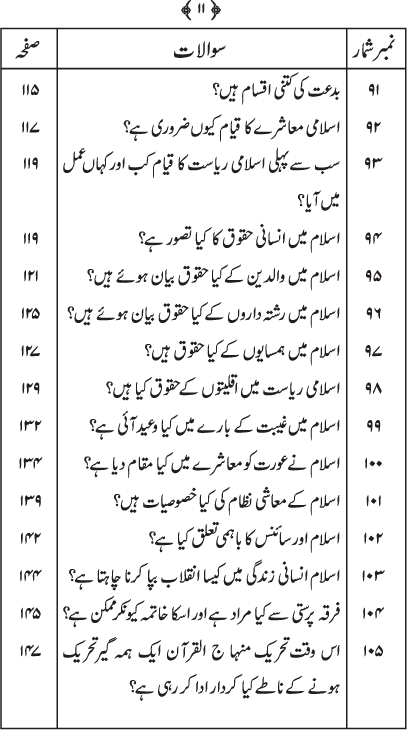 ﴿ ۱۱ ﴾
نمبر شمار سوالات صفحہ
۹۱ بدعت کی کتنی اقسام ہیں؟ ۱۱۵
۹۲ اسلامی معاشرے کا قیام کیوں ضروری ہے؟ ۱۱۷
۹۳ سب سے پہلی اسلامی ریاست کا قیام کب اور کہاں عمل ۱۱۹
میں آیا؟
۹۴ اسلام میں انسانی حقوق کا کیا تصور ہے؟ ۱۱۹
۹۵ اسلام میں والدین کے کیا حقوق بیان ہوئے ہیں؟ ۱۲۱
۹۶ اسلام میں رشتہ داروں کے کیا حقوق بیان ہوئے ہیں؟ ۱۲۵
۹۷ اسلام میں ہمسایوں کے کیا حقوق ہیں؟ ۱۲۷
۹۸ اسلامی ریاست میں اقلیتوں کے حقوق کیا ہیں؟ ۱۲۹
۹۹ اسلام میں غیبت کے بارے میں کیا وعید آئی ہے؟ ۱۳۲
۱۰۰ اسلام نے عورت کو معاشرے میں کیا مقام دیا ہے؟ ۱۳۴
۱۰۱ اسلام کے معاشی نظام کی کیا خصوصیات ہیں؟ ۱۳۹
۱۰۲ اسلام اور سائنس کا باہمی تعلق کیا ہے؟ ۱۴۲
۱۰۳ اسلام انسانی زندگی میں کیسا انقلاب بپا کرنا چاہتا ہے؟ ۱۴۴
۱۰۴ فرقہ پرستی سے کیا مراد ہے اور اسکا خاتمہ کیونکر ممکن ہے؟ ۱۴۵
۱۰۵ اس وقت تحریک منہاج القرآن ایک ہمہ گیر تحریک ۱۴۷
ہونے کے ناطے کیا کردار ادا کر رہی ہے؟